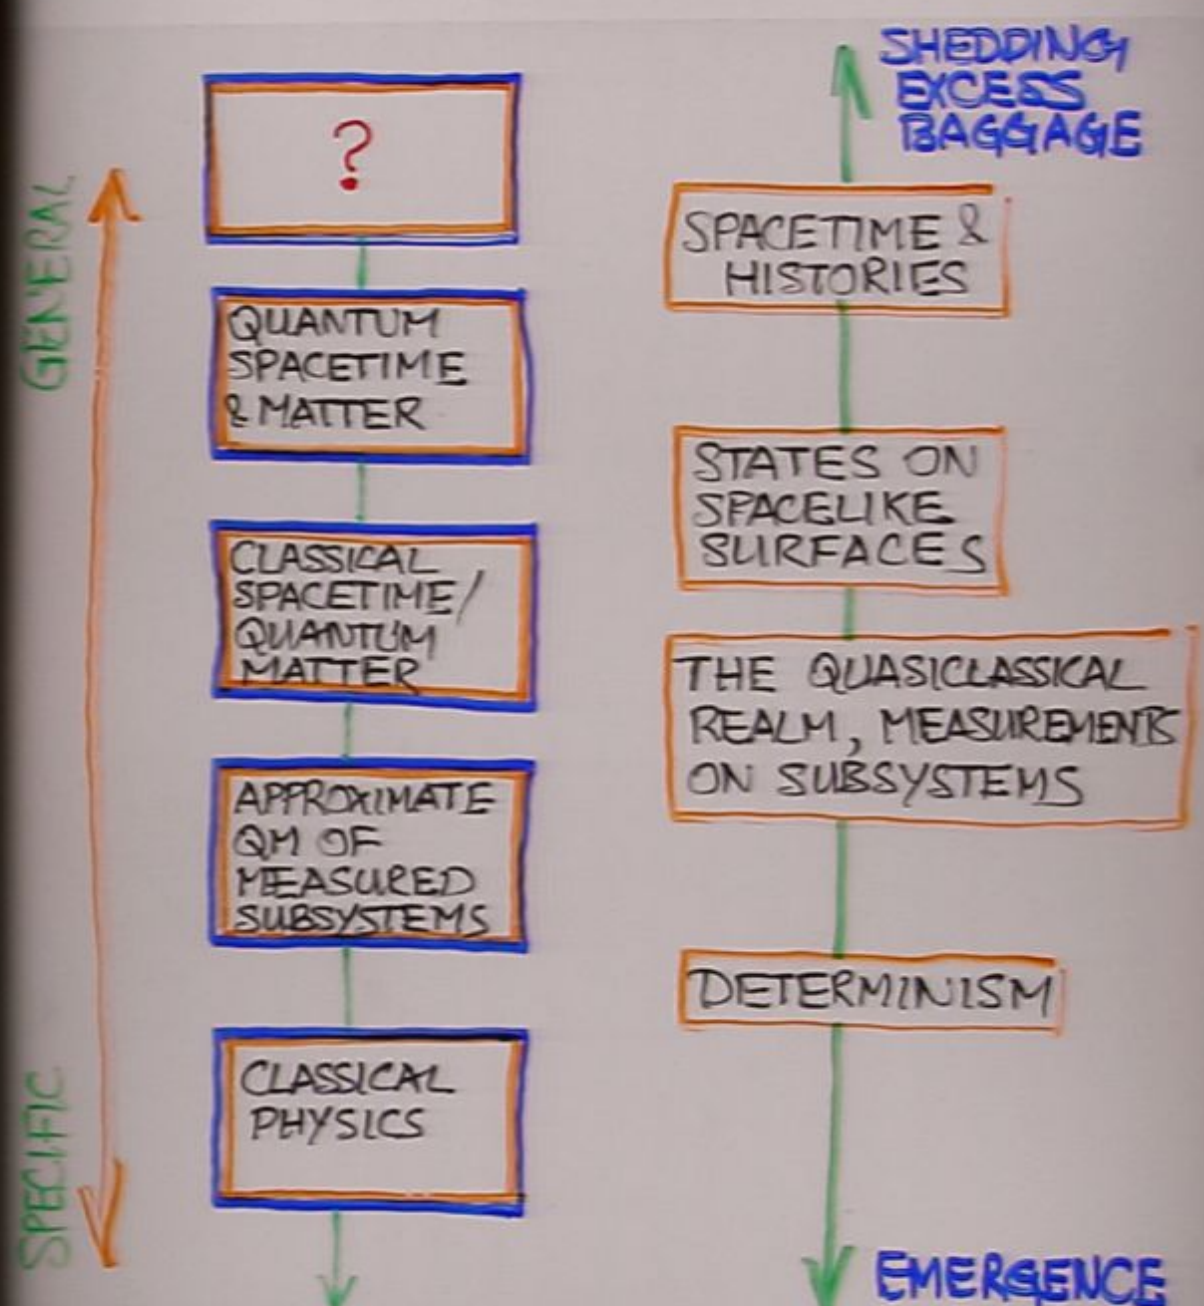 GENERAL
SPECIFIC
?
QUANTUM
SPACETIME
& MATTER
CLASSICAL
SPACETIME/
QUANTUM
MATTER
APPROXIMATE
QM OF
MEASURED
SUBSYSTEMS
CLASSICAL
PHYSICS
SHEDDING
EXCESS
BAGGAGE
SPACETIME &
HISTORIES
STATES ON
SPACELIKE
SURFACES
THE QUASICLASSICAL
REALM, MEASUREMENTS
ON SUBSYSTEMS
DETERMINISM
EMERGENCE